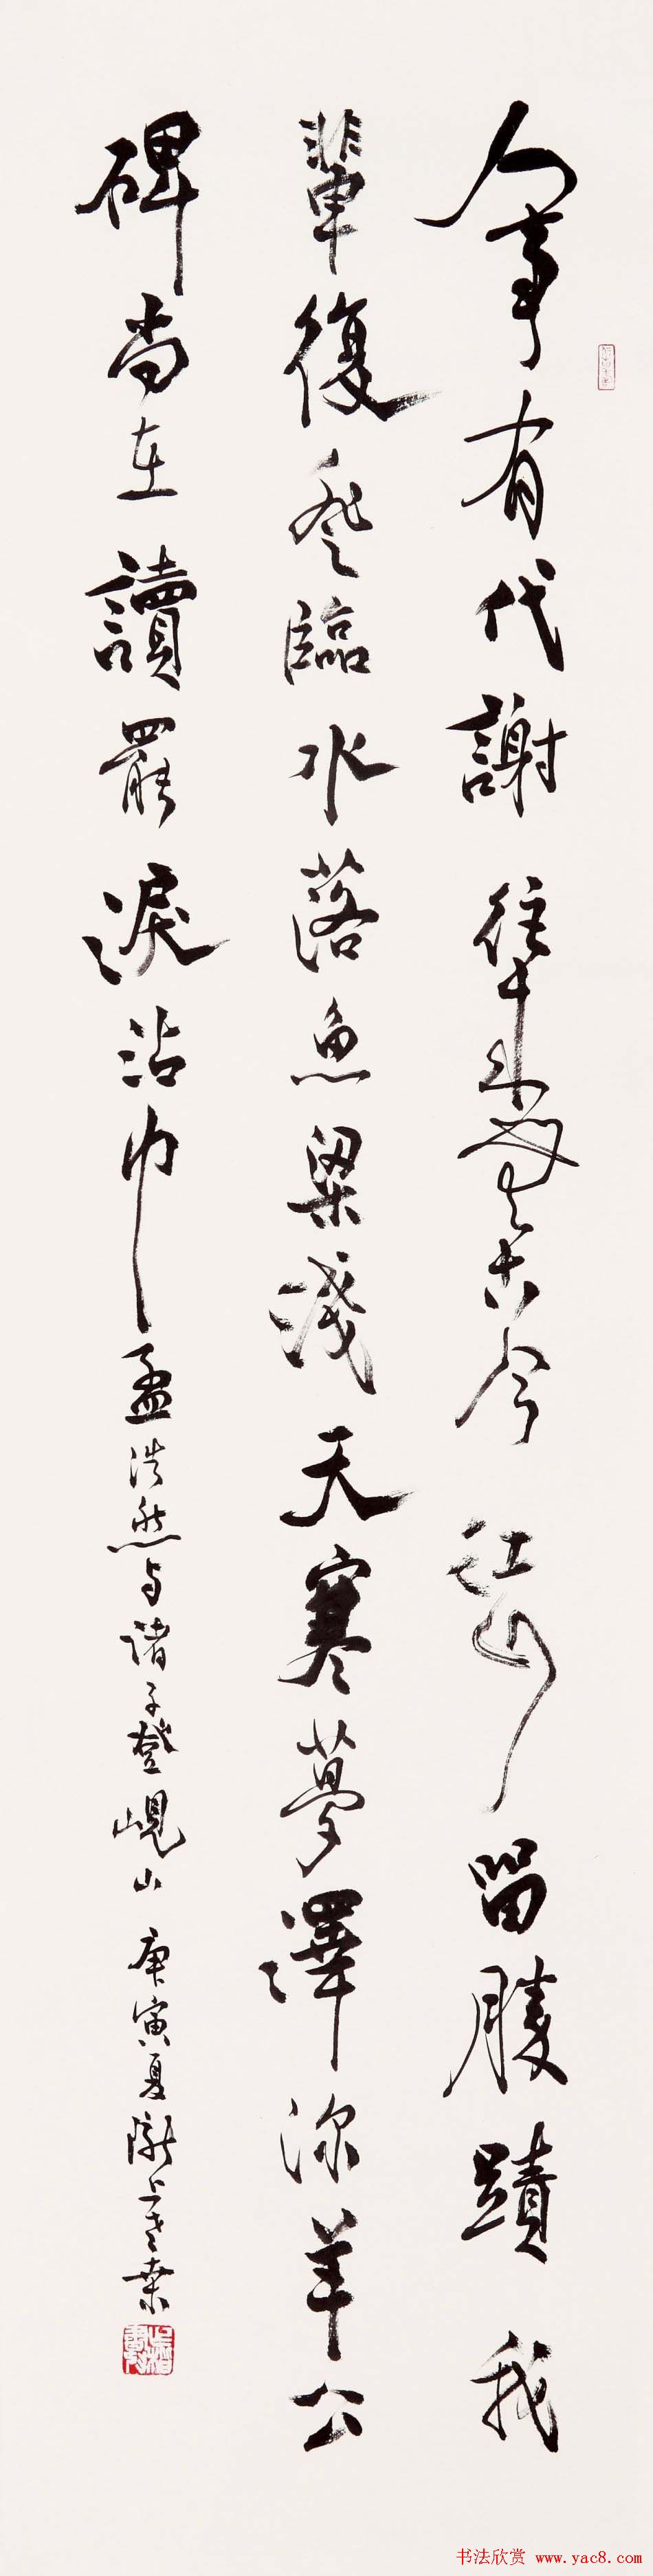 人事有代謝往來成古今江山留勝蹟我
輩復登臨水落魚梁淺天寒夢澤深羊公
碑尚在讀罷淚沾巾孟浩然与諸子登峴山庚寅夏隴上
书法欣赏 www.yac8.com